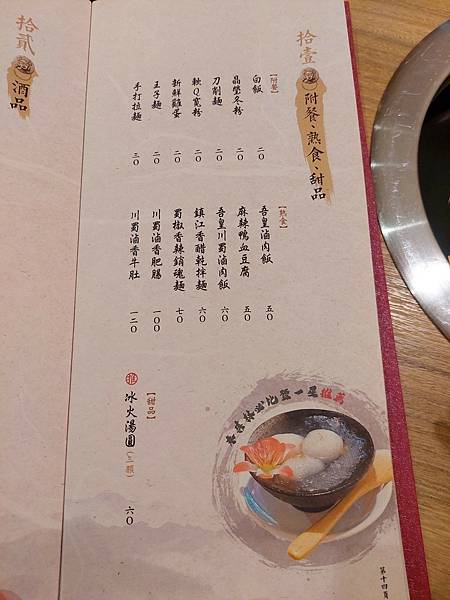 拾壹 附餐、熟食、甜品
【附餐】
白飯 二〇
晶瑩冬粉 二〇
刀削麵 二〇
軟Q寬粉 二〇
新鮮雞蛋 二〇
王子麵 二〇
手打拉麵 三〇
【熟食】
吾皇滷肉飯 五〇
麻辣鴨血豆腐 五〇
吾皇川蜀滷肉飯 六〇
鎮江香醋乾拌麵 六〇
蜀椒香辣銷魂麵 七〇
川蜀滷香肥腸 一〇〇
川蜀滷香牛肚 一二〇
【甜品】
推 冰火湯圓(三顆) 六〇
米其林必比登一星推薦
第十四頁
拾貳 酒品